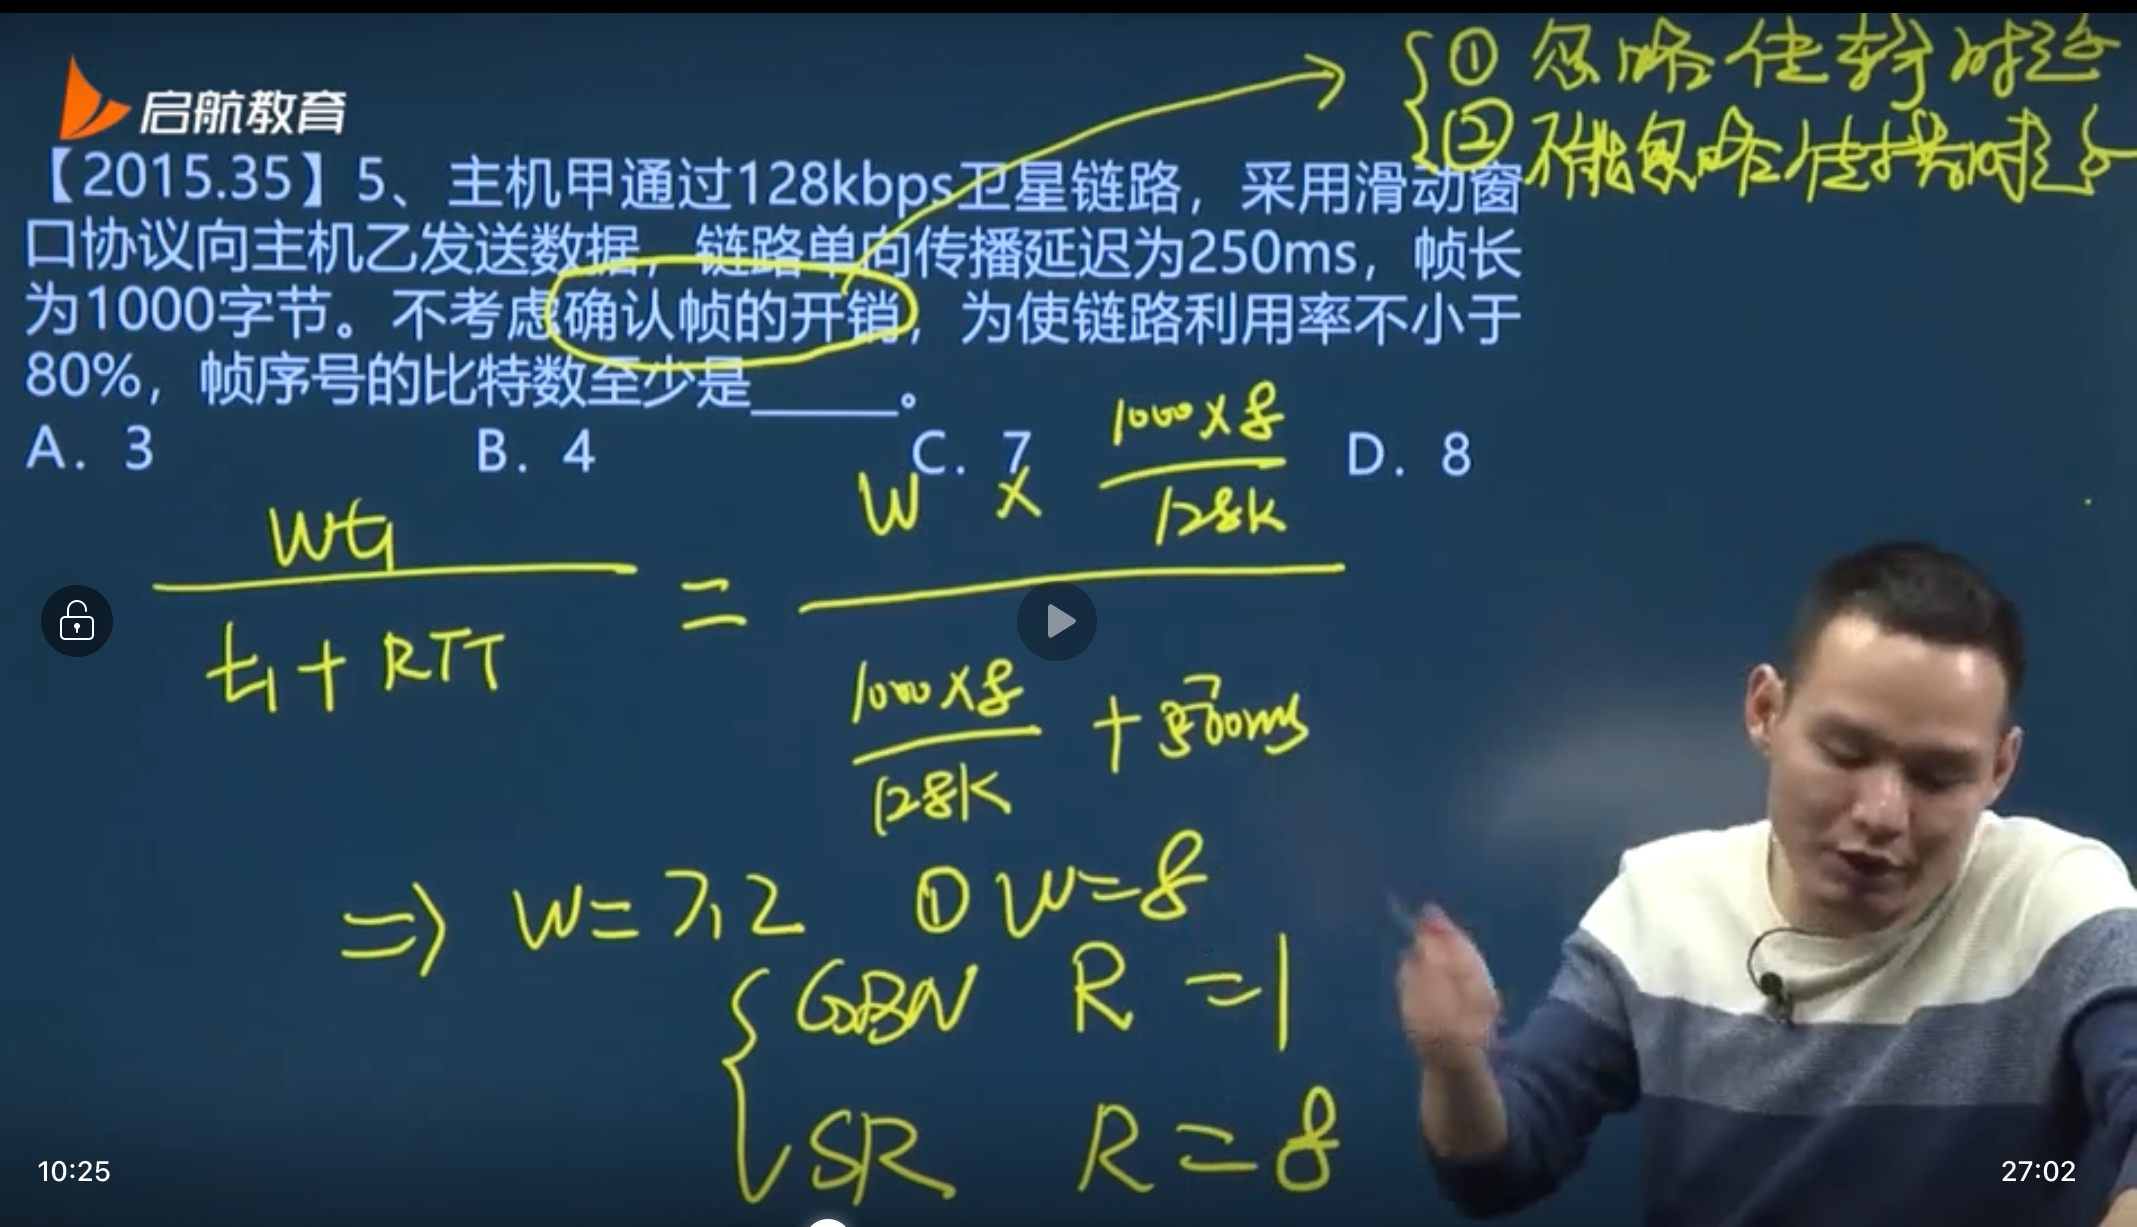 启航教育
① 忽略传输时延
② 不能忽略传播时延
【2015.35】5、主机甲通过128kbps卫星链路，采用滑动窗
口协议向主机乙发送数据，链路单向传播延迟为250ms，帧长
为1000字节。不考虑确认帧的开销，为使链路利用率不小于
80%，帧序号的比特数至少是_____。
A. 3 B. 4 C. 7 D. 8
1000×8
W × 128K
Wt1
=
t1 + RTT
1000×8
128K + 500ms
⇒ W = 7.2 ① W=8
GBN R =1
SR R = 8
10:25 27:02